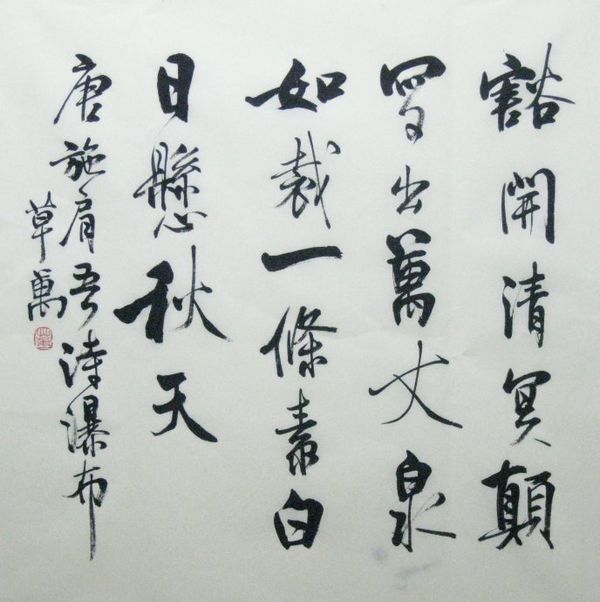 豁開清冥顛
寫出萬丈泉
如裁一條素白
日懸秋天
唐施肩吾詩瀑布
草萬